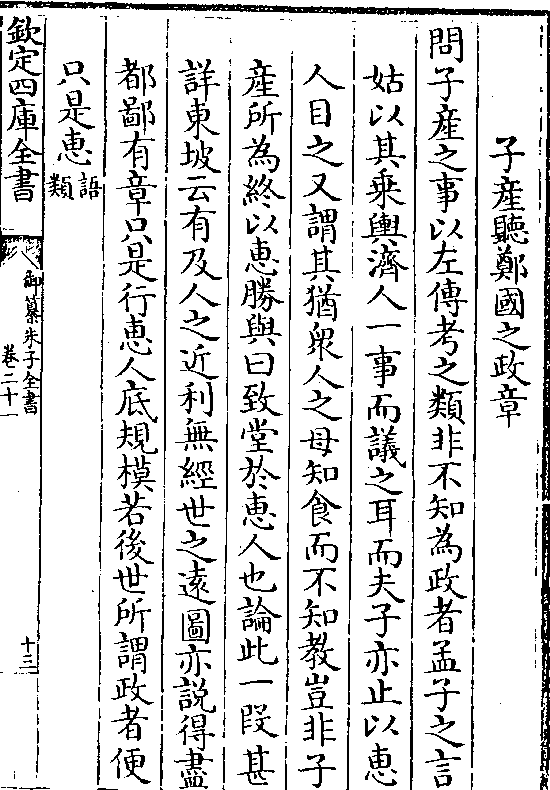 子産聽鄭國之政章
問子産之事以左傳考之類非不知為政者孟子之言
姑以其乗輿濟人一事而議之耳而夫子亦止以惠
人目之又謂其猶衆人之母知食而不知教豈非子
産所為終以惠勝與曰致堂於惠人也論此一段甚
詳東坡云有及人之近利無經世之遠圖亦説得盡
都鄙有章只是行惠人底規模若後世所謂政者便
只是惠語類
欽定四庫全書
御纂朱子全書
卷二十一
十三